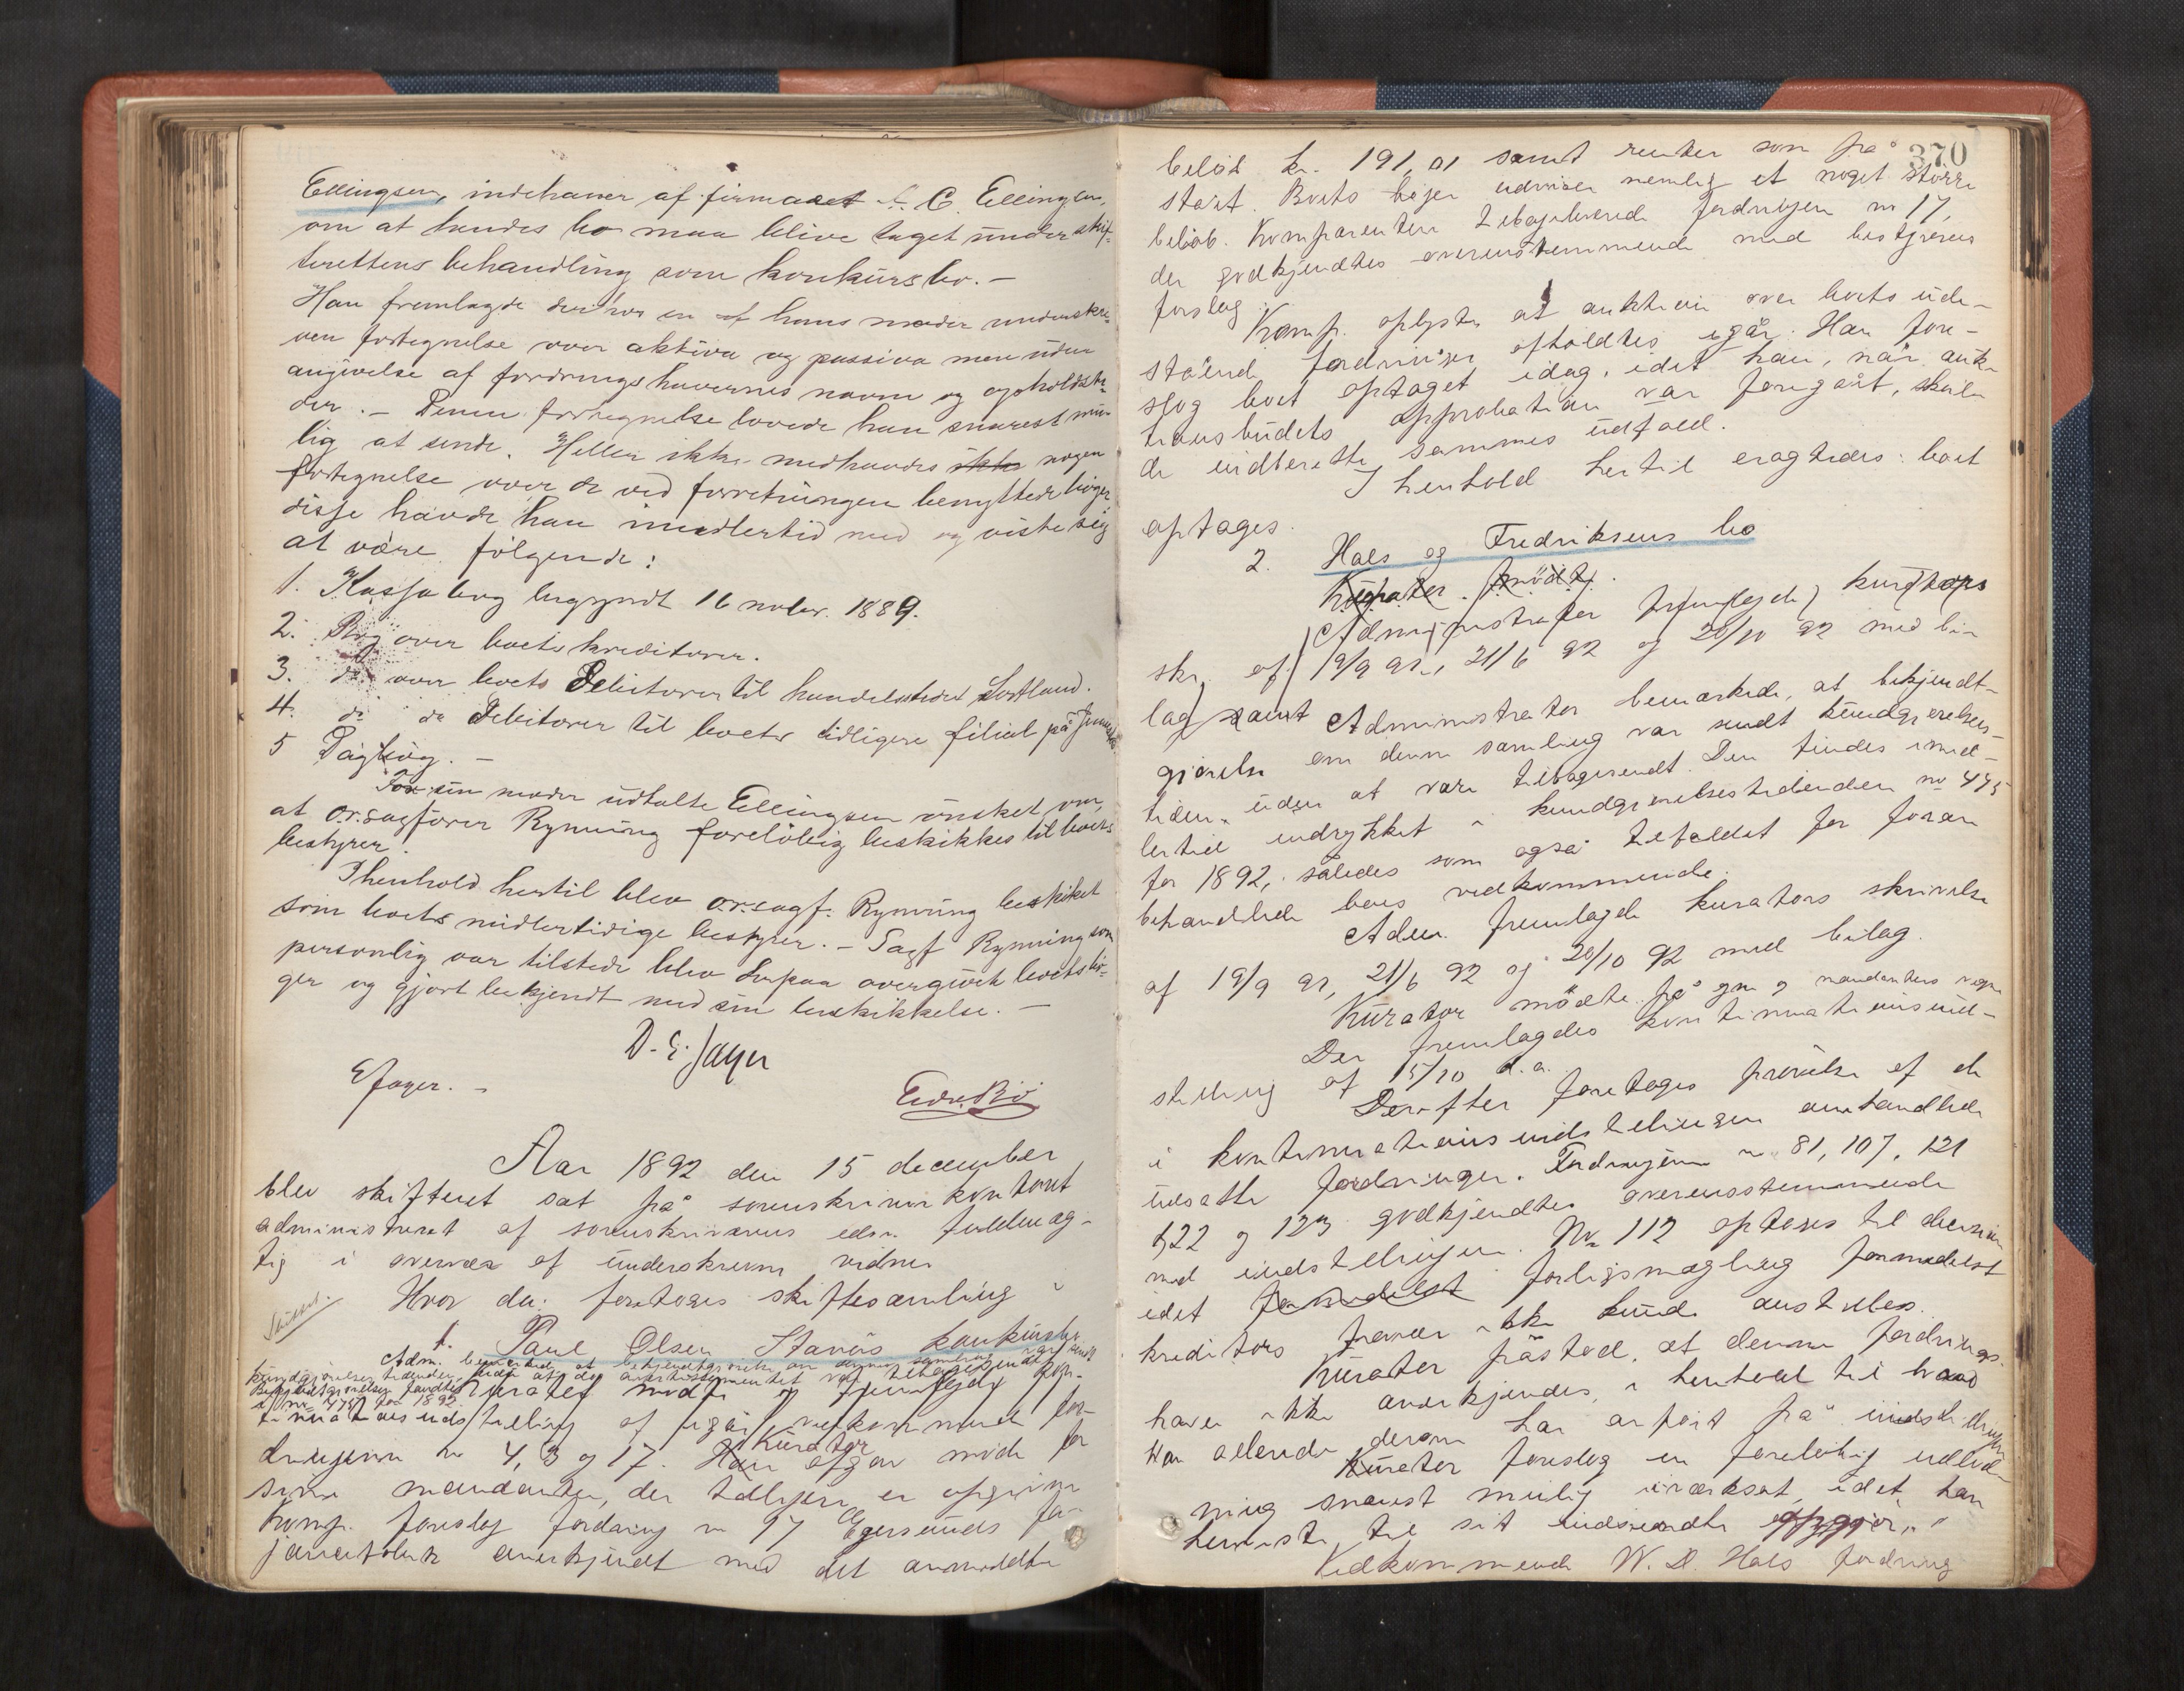 Ellingsen, indehaver af firmaet C. Ellingsen,
om at hendes bo maa blive taget under skif-
terettens behandling som konkursbo. -
Han fremlagde derhos en af hans moder underskre-
ven fortegnelse over aktiva og passiva men uden
angivelse af fordringshavernes navne og opholdste-
der. - Denne fortegnelse lovede han snarest mu-
lig at sende. Heller ikke medhavdes ikke nogen
fortegnelse over de ved forretningen benyttede bøger
disse havde han imidlertid med og viste sig
at være følgende:
1. Kassabog begyndt 16 novbr. 1889.
2. Bog over boets kreditorer.
3. do over boets Debitorer til handelsstedet Sortland.
4. do do Debitorer til boets tidligere filial på
5 Dagbog. -
For sin moder udtalte Ellingsen ønsket om,
at o.r.sagfører Rynning foreløbig beskikkes til boets
bestyrer.
I henhold hertil blev o.r.sagf. Rynning beskikket
som boets midlertidige bestyrer. - Sagf Rynning som
personlig var tilstede blev herpaa overgivet boets bø-
ger og gjort bekjendt med sin beskikkelse. -
D. E. Jayer
E Jayer. -
Aar 1892 den 15 december
blev skifteret sat på sorenskriverkontoret
administreret af sorenskriverens edsv. fuldmæg-
tig i overvær af underskrevne vidner
Hvor da: foretoges skiftesamling i
1. Paul Olsen Stavøs konkursbo
Adm. bemærkede at bekjendtgjørelse om denne samling var sendt
kundgjørelsestidenden, uden at avertissementet var tilbagesendt
Bekjendtgjørelsen fandtes
i no 475 for 1892.
Kurator mødte og fremlagde kon-
tinuationsindstilling af igår vedkommende for-
dringerne no 4, 3 og 17. Han Kurator opgav møde for
sine mandanter, der tidligere er opgivne
Komp. foreslog fordring no 17 Egersunds fa-
jancefabrik anerkjendt med det anmeldte
370
beløb kr. 191,01 samt renter som på-
staat. Boets bøger udviser nemlig et noget større
beløb. Komparenten tilbageleverede fordringen no 17,
der godkjendtes overensstemmende med bestyrerens
forslag.
Komp. oplyste at auktion over boets ude-
stående fordringer afholdtes igår. Han fore-
slog boet optaget idag, idet han, når auk-
tionsbudets approbation var foregået, skul-
de indberette sammes udfald.
I henhold hertil eragtedes: boet
optages.
2. Hals og Fredriksens bo
Kurator mødte.
Administrator fremlagde kurators
skr. af 19/9 91, 21/6 92 og 20/10 92 med bi-
lag samt Administrator bemærkede, at bekjendt-
gjørelse om denne samling var sendt kundgjørelses-
tiden. uden at være tilbagesendt. Den findes imid-
lertid indrykket i kundgjørelsestidenden no 475
for 1892, således som også tilfældet for foran
behandlede boes vedkommende.
Adm. fremlagde kurators skrivelse
af 19/9 91, 21/6 92 og 20/10 92 med bilag.
Kurator mødte på egne og mandanters vegne
Der fremlagdes kontinuationsind-
stilling af 15/10 d.a.
Derefter foretoges prøvelse af de
i kontinuationsindstillingen omhandlede
udsatte fordringer. Fordringerne no 81, 107, 121
122 og 123 godkjendtes overensstemmende
med indstillingen. No 112 optages til decision
idet formedelst forligsmægling formedelst
kreditors fravær ikke kunde anstilles.
Kurator påstod, at denne fordrings-
haver ikke anerkjendes, i henhold til hvad
han allerede derom har anført på indstillingen
Kurator foreslog en foreløbig udlod-
ning snarest mulig iværksat, idet han
henviste til sit indsendte opgjør."
Vedkommende W. D. Hals fordring